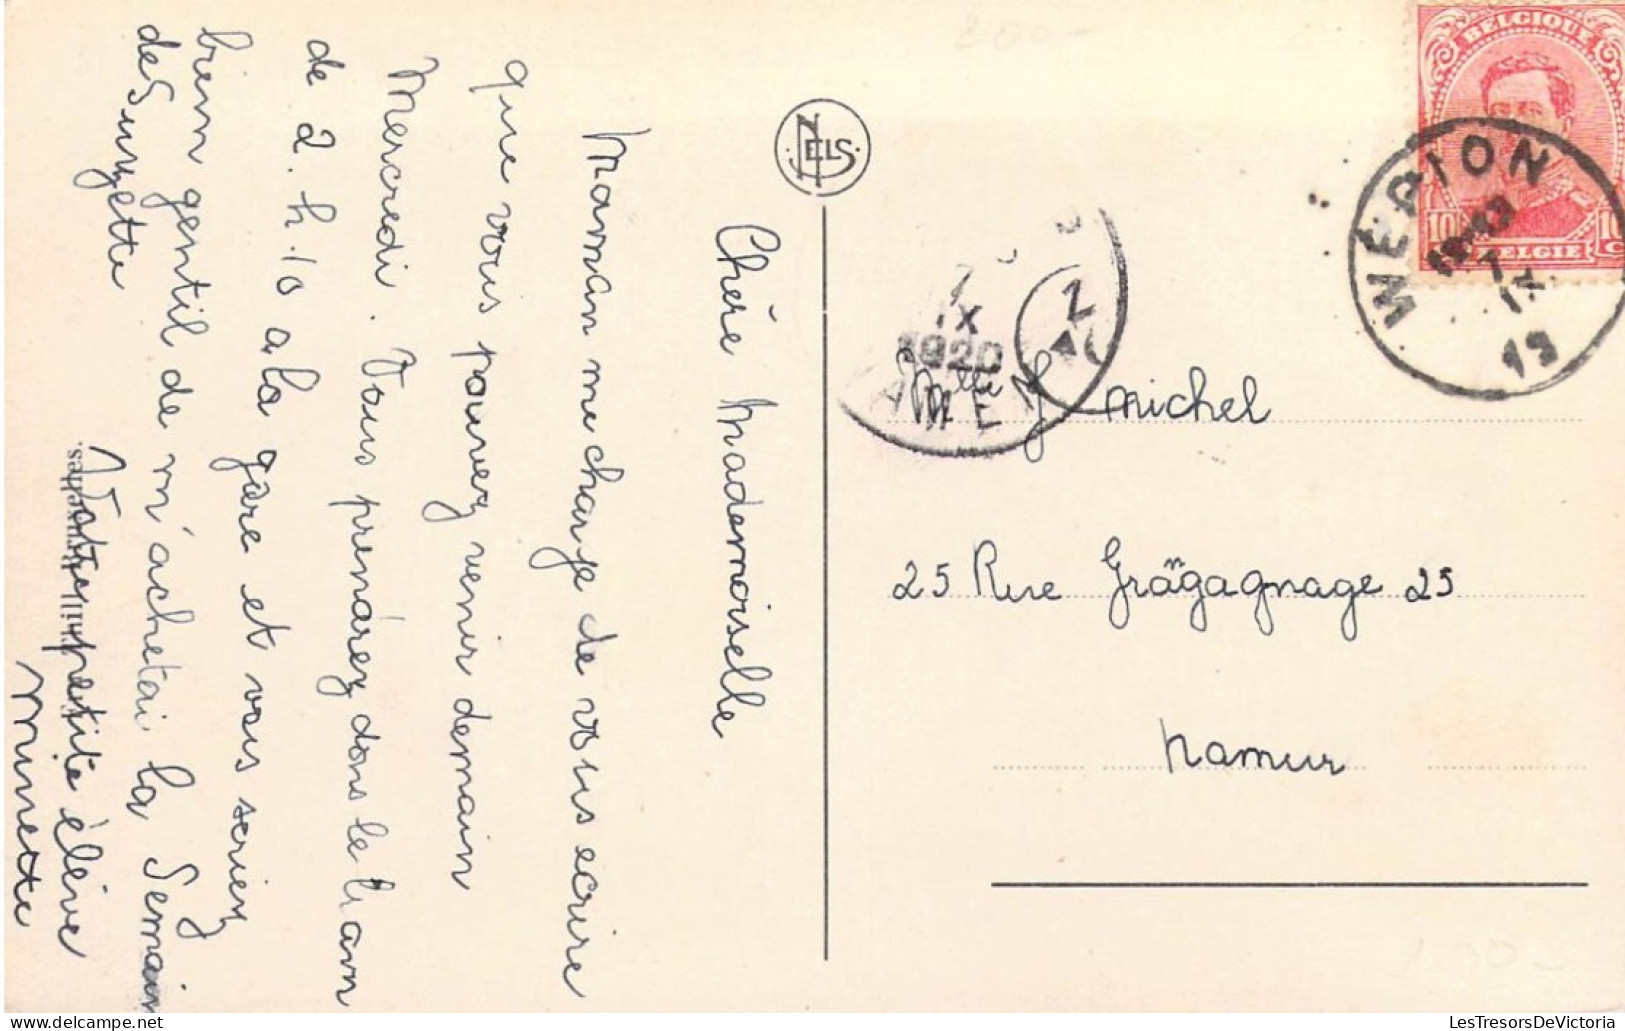 Chère Mademoiselle
Maman me charge de vous ecrire
que vous pouvez venir demain
Mercredi. Vous prenárez dons le tram
de 2. h. 10 a la gare et vous seriez
bien gentil de m'achetai la Semain
de Suzette
Votre petite élève
Minette
NELS
BELGIQUE
10
10 C
BELGIE
WÉPION
7
IX
19
IX
1920
NAMEN
Melle J michel
25 Rue Grágagnage 25
Namur
LesTresorsDeVictoria